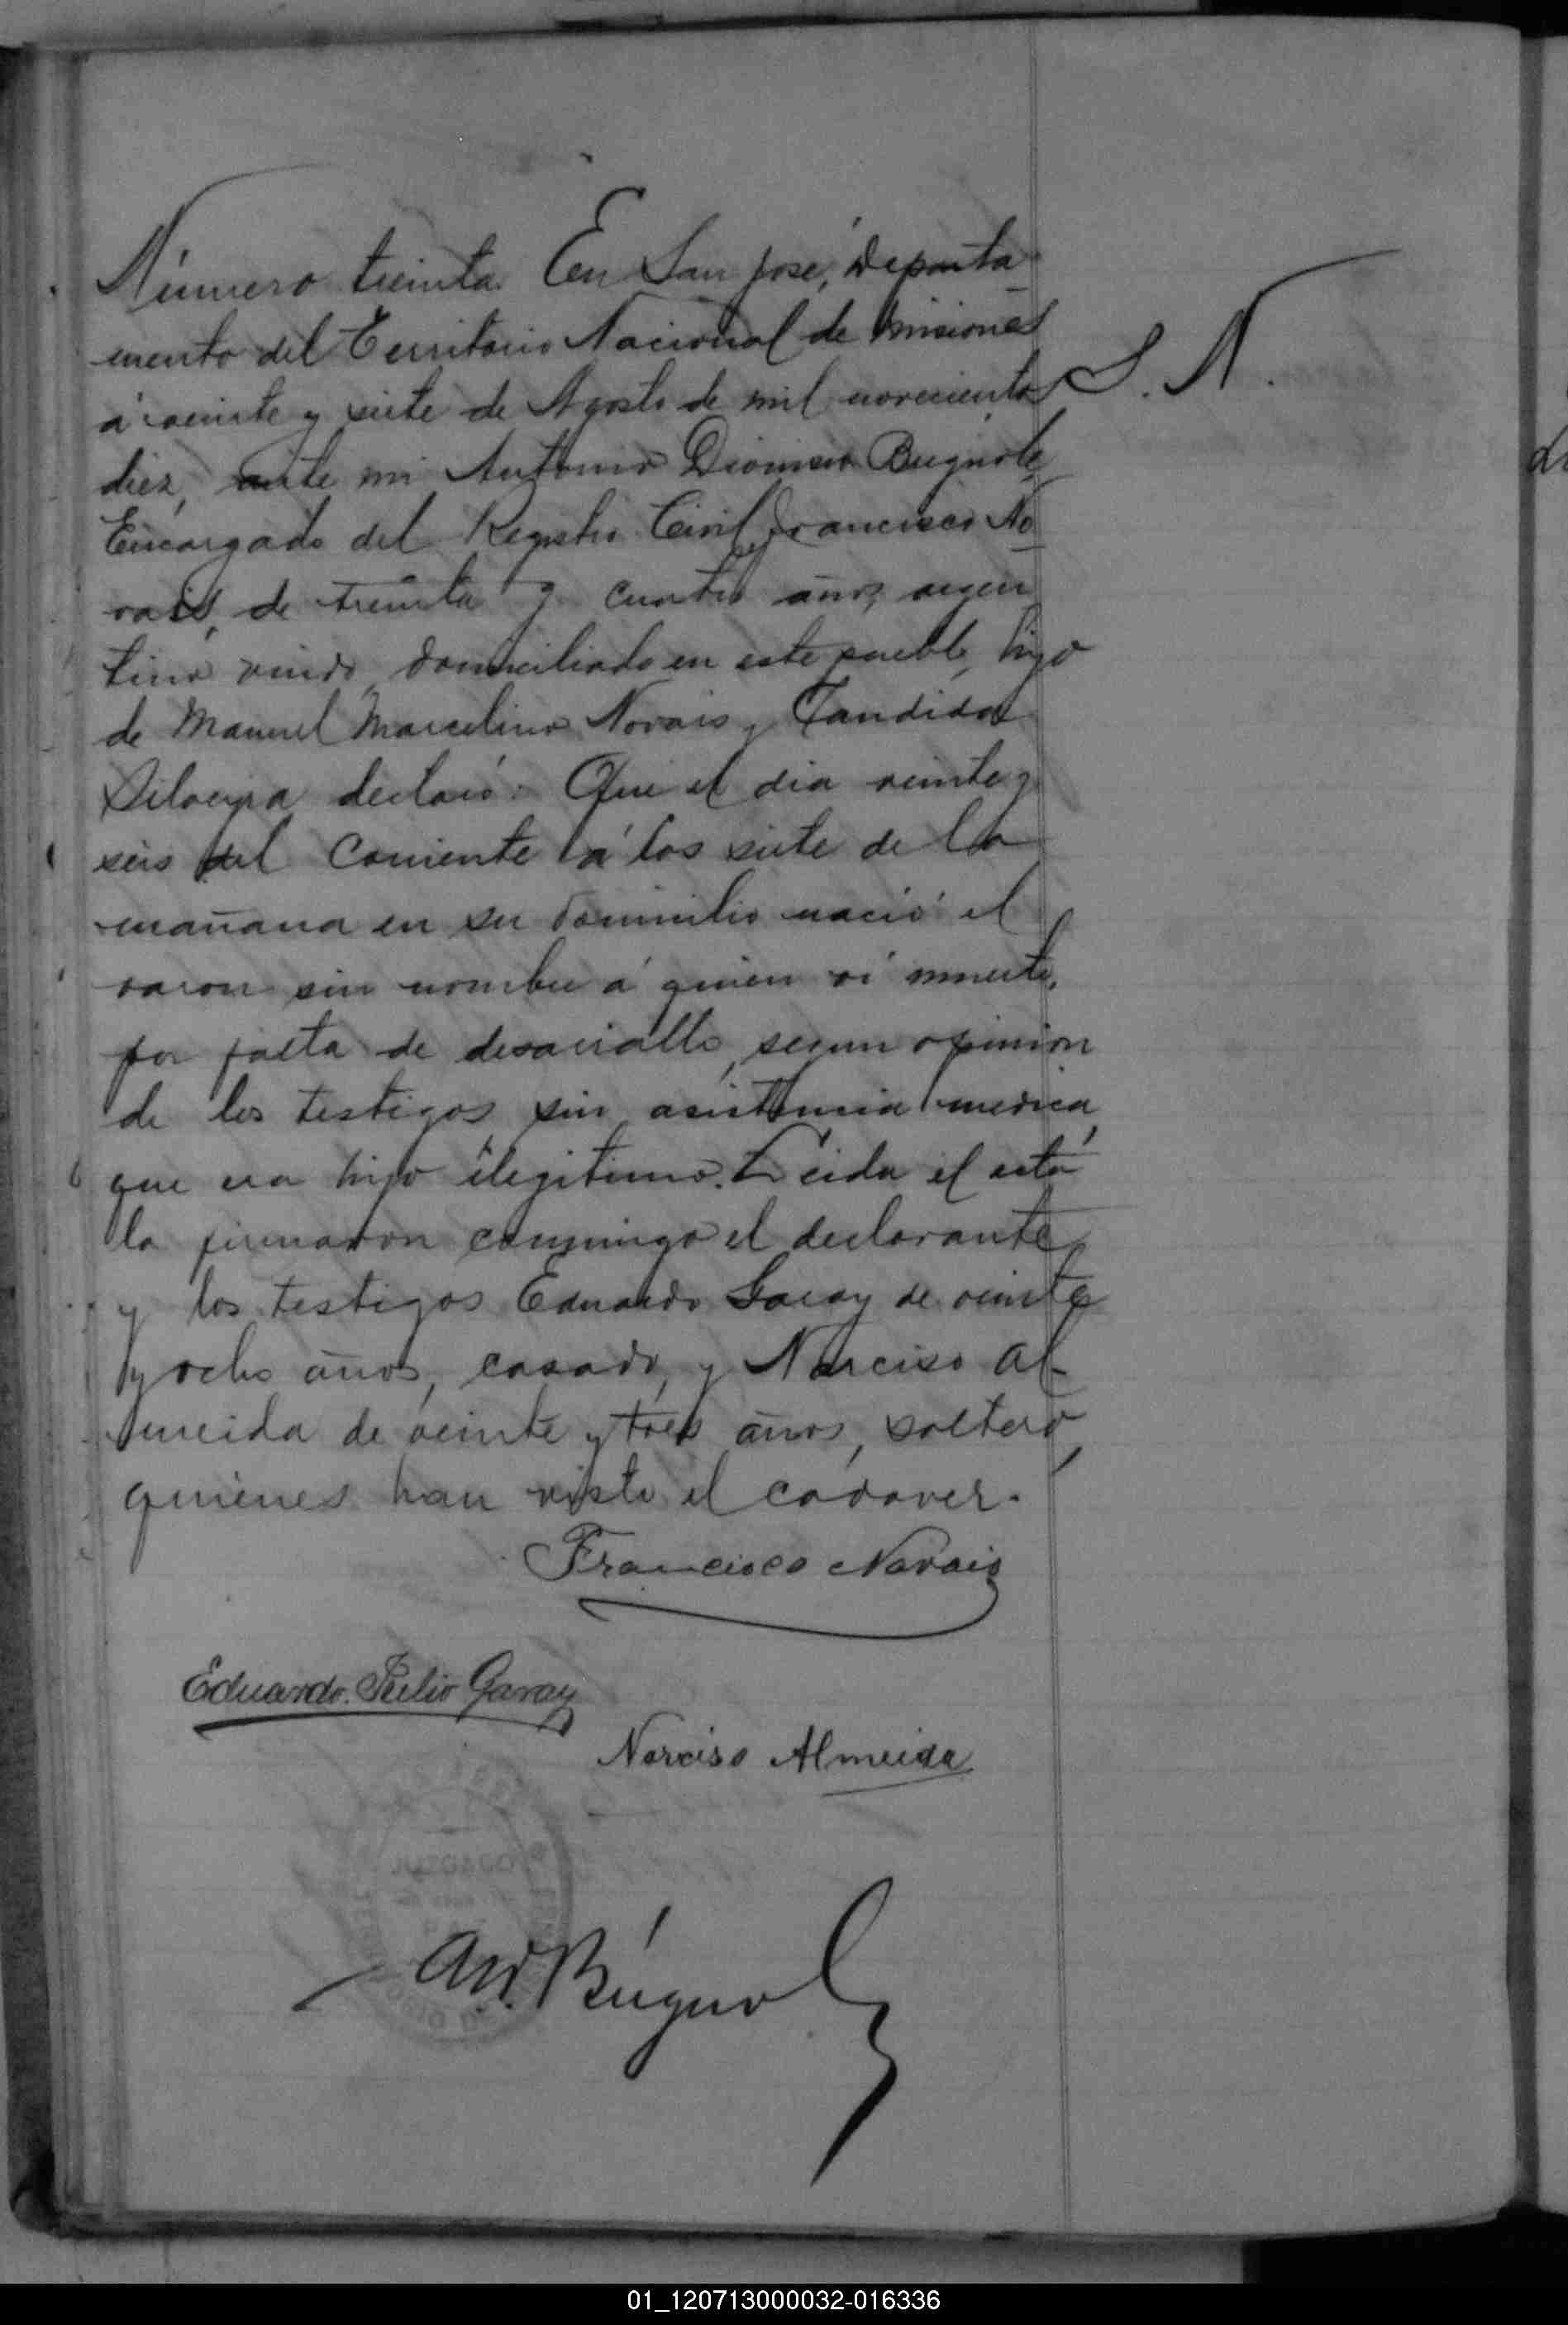 Número treinta. En San José, Departa-
mento del Territorio Nacional de Misiones
á veinte y siete de Agosto de mil novecientos
S. N.
diez, ante mi Antonio Dionisio Bugnole,
Encargado del Registro Civil, Francisco No-
vais, de treinta y cuatro años, argen
tino viudo, domiciliado en este pueblo, hijo
de Manuel Marcelino Novais y Candida
declaró: Que el dia veinte y
seis del Corriente á las siete de la
mañana en su domicilio nació el
varon sin nombre á quien vi muerto,
por falta de desarrollo, segun opinion
de los testigos sin asistencia medica,
que era hijo ilegitimo. Leida el acta
la firmaron conmigo el declarante
y los testigos Eduardo Garay de veinte
y ocho años, casado, y Narciso Al-
meida de veinte y tres años, soltero,
quienes han visto el cadaver.
Francisco Novais
Eduardo Julio Garay
Narciso Almeida
JUZGADO
DE
PAZ
Bugnol
01_120713000032-016336